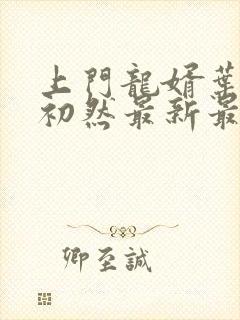 上門龍婿葉
初然最新最
卿至誠